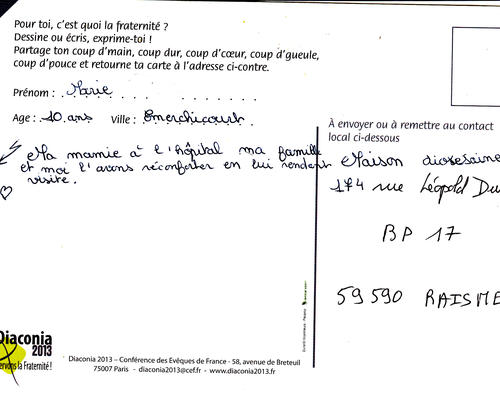 Pour toi, c'est quoi la fraternité ?
Dessine ou écris, exprime-toi !
Partage ton coup d'main, coup dur, coup d'cœur, coup d'gueule,
coup d'pouce et retourne ta carte à l'adresse ci-contre.
Prénom : Marie
Age : 10 ans Ville : Emerchicourt
Ma mamie à l'hôpital ma famille
et moi l'avons réconforter en lui rendant
visite.
À envoyer ou à remettre au contact
local ci-dessous
Maison diocésaine
174 rue Léopold Du
BP 17
59590 RAISME
Diaconia
2013
ervons la Fraternité !
Diaconia 2013 – Conférence des Evêques de France - 58, avenue de Breteuil
75007 Paris - diaconia2013@cef.fr - www.diaconia2013.fr